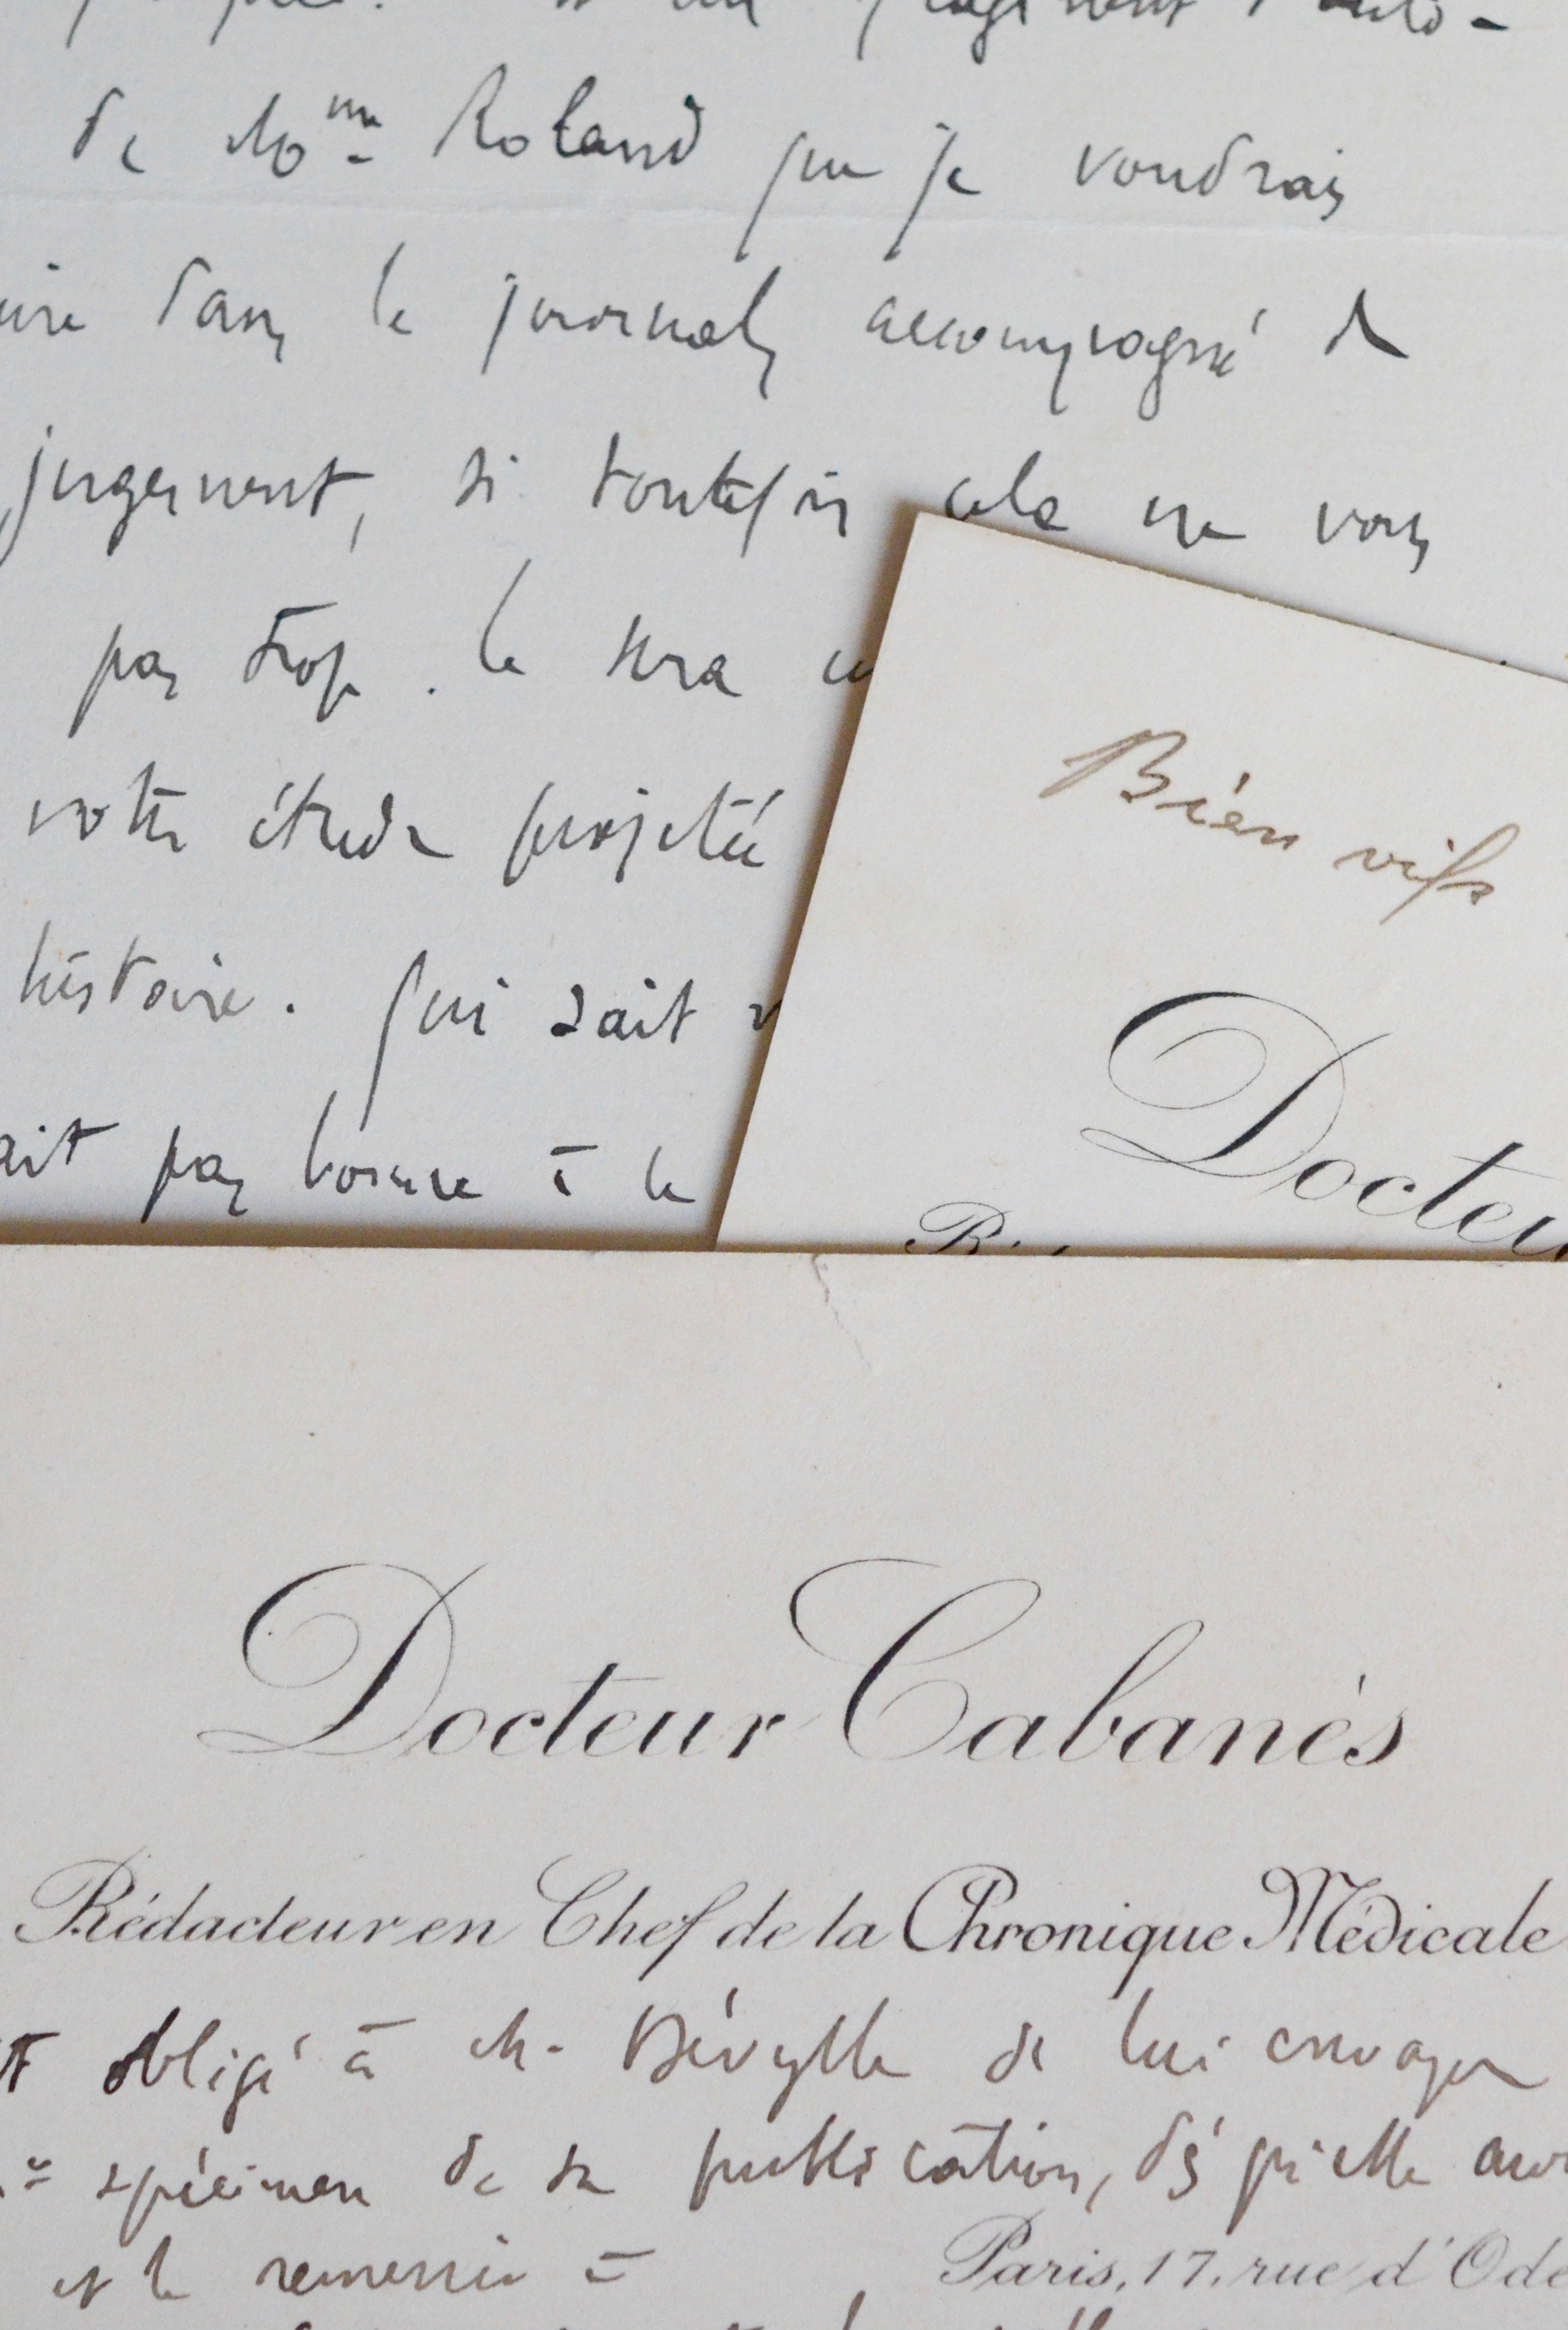 de Mme Roland que je voudrais
dans le journal, accompagné de
jugement, si toutefois cela ne vous
pas trop. Ce sera
votre étude projetée
histoire. Qui sait
pas bonne à le
Bien vifs
Docteu
Docteur Cabanès
Rédacteur en Chef de la Chronique Médicale
obligé à M. Dévylle de lui envoyer
spécimen de sa publication, dès qu'elle
et le remercie à
Paris, 17, rue d'Odé